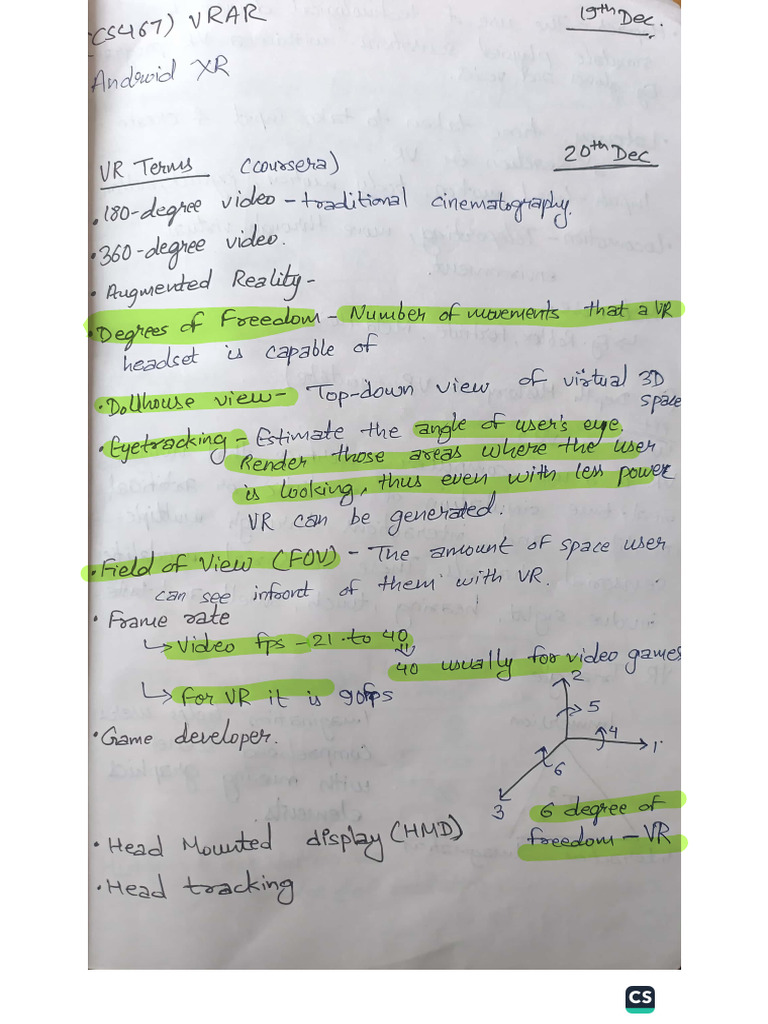 (CS467) VRAR
19th Dec.
Android XR
VR Terms (coursera)
20th Dec
• 180-degree video - traditional cinematography.
• 360-degree video.
• Augmented Reality -
• Degrees of Freedom - Number of movements that a VR
headset is capable of
• Dollhouse view - Top-down view of virtual 3D
space
• Eyetracking - Estimate the angle of user's eye.
Render those areas where the user
is looking, thus even with less power
VR can be generated.
• Field of View (FOV) - The amount of space user
can see infront of them with VR.
• Frame rate
↳ Video fps - 21 to 40
40 usually for video games
↳ For VR it is 90fps
• Game developer.
2
5
4
1
6
3
6 degree of
freedom - VR
• Head Mounted display (HMD)
• Head tracking
CS